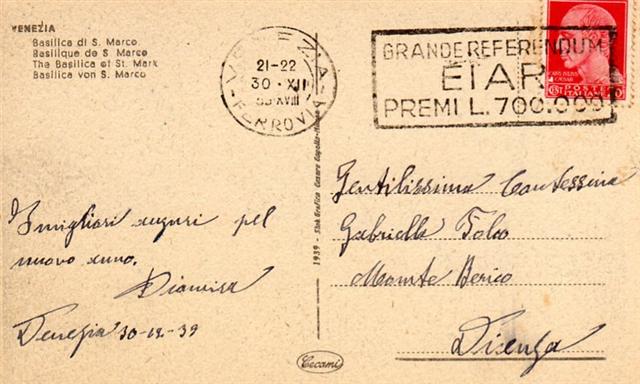 VENEZIA
Basilica di S. Marco
Basilique de S. Marco
The Basilica of St. Mark
Basilica von S. Marco
VENEZIA
21-22
30·XII
39 XVIII
FERROVIA
GRANDE REFERENDUM
EIAR
PREMI L. 700.000
POSTE
ITALIANE
I migliori auguri pel
nuovo anno.
Venezia 30-12-39
1939 - Stab. Grafico Cesare Capello
Cecami
Gentilissima Contessina
Gabriella
Monte Berico
Vicenza